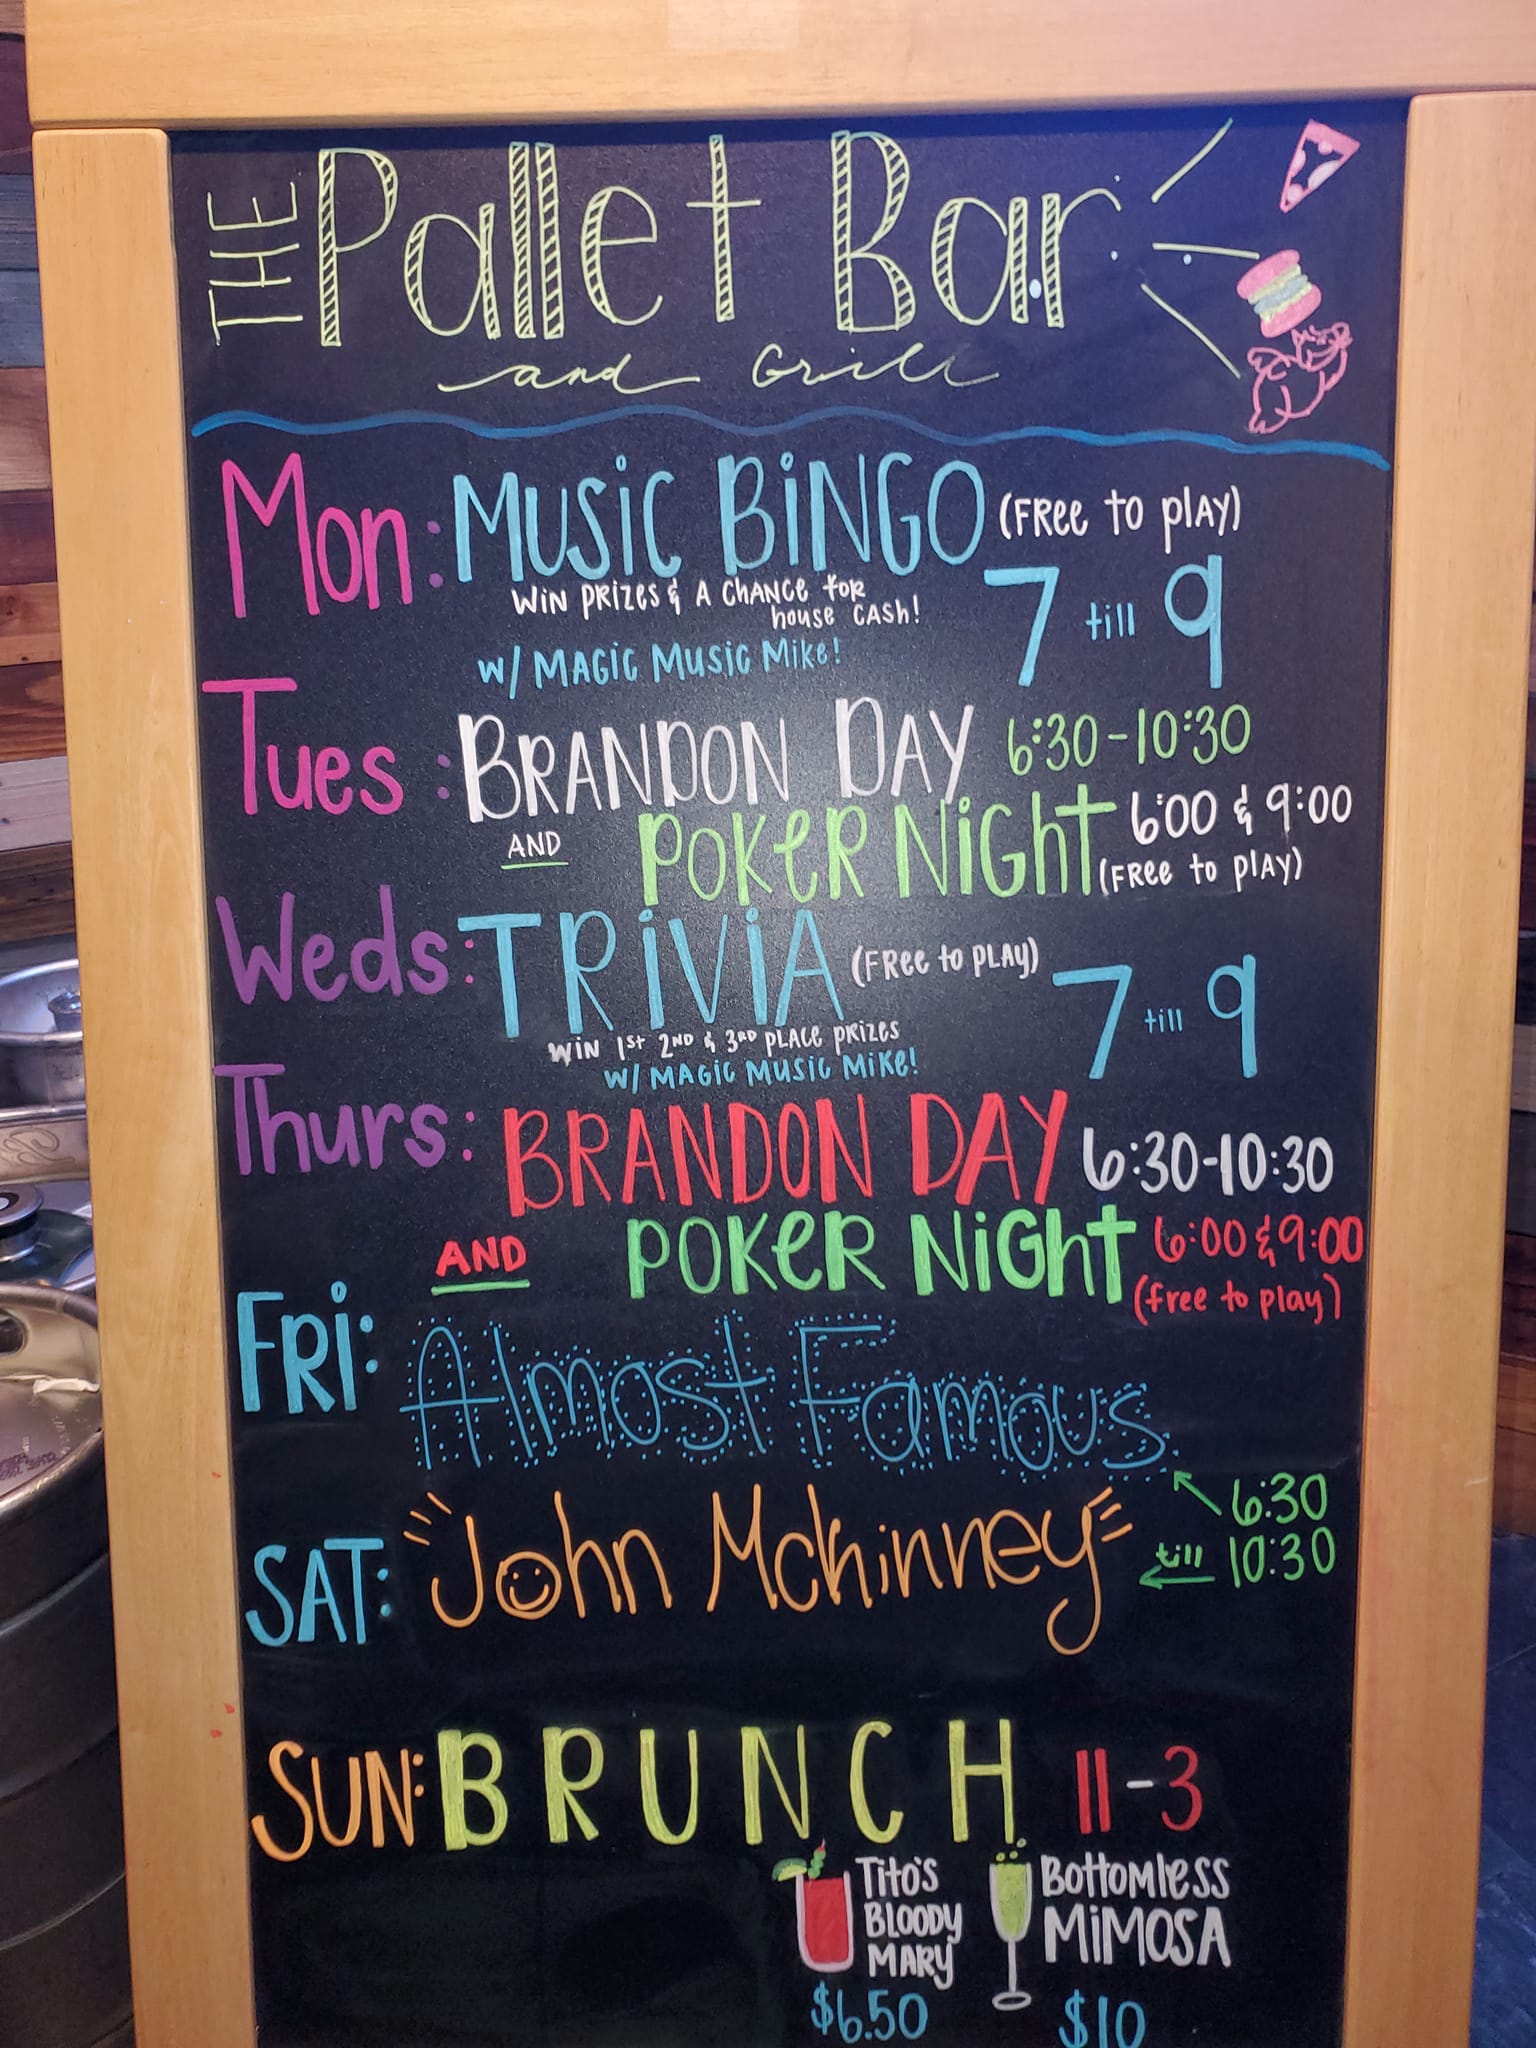 THE Pallet Bar
and Grill
Mon: MUSiC BiNGO (FRee to plAy)
WiN pRizes & A ChANCe foR
house CASh!
7 till 9
w/ MAGiC MUSiC Mike!
Tues: BRANDON DAY 6:30-10:30
AND POKeR NiGht 6:00 & 9:00
(FRee to plAy)
Weds: TRiViA (FRee to PLAy) 7 till 9
WiN 1ST 2ND & 3RD PLACE PRizes
w/ MAGiC MUSiC MiKe!
Thurs: BRANDON DAY 6:30-10:30
AND POKeR NiGht 6:00 & 9:00
(free to play)
FRi: Almost Famous
6:30
till 10:30
SAT: John Mckinney
SUN: BRUNCH 11-3
Tito's
BLOODy
MARy
$6.50
Bottomless
MiMOSA
$10